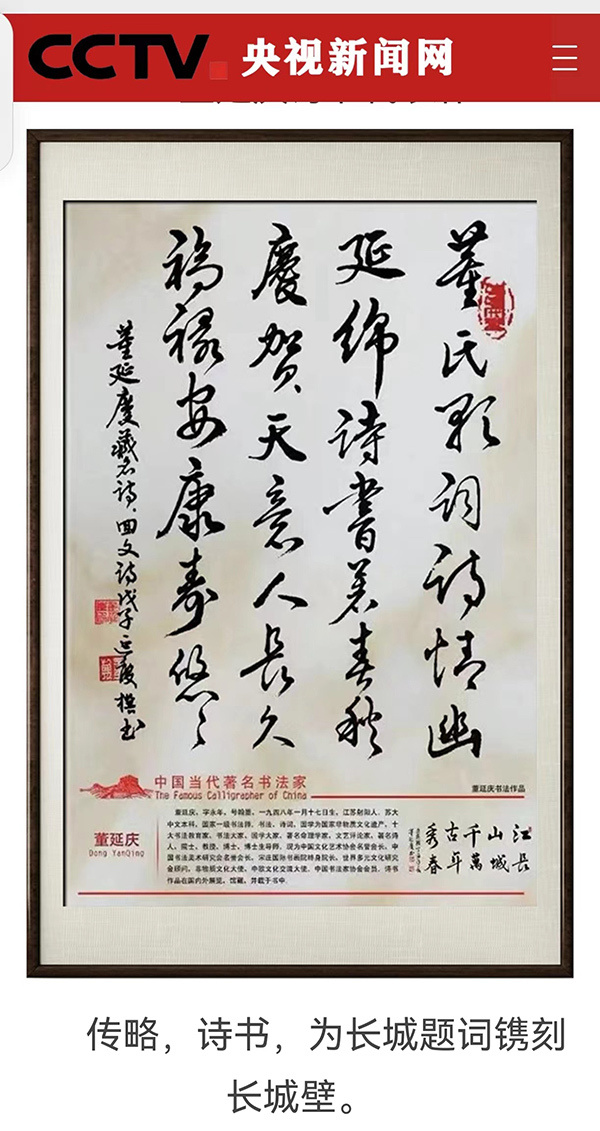 CCTV.央视新闻网
董氏歌词诗情幽
延绵诗书著春秋
慶贺天意人長久
福禄安康寿悠々
董延慶藏名诗、回文诗戊子延慶撰书
中国当代著名书法家
The Famous Calligrapher of China
董延庆书法作品
董延庆
Dong YanQing
董延庆，字永年，号翰墨，一九四八年一月十七日生，江苏射阳人，苏大
中文本科，国家一级书法师，书法、诗词、国学为国家非物质文化遗产，十
大书法教育家，书法大家、国学大家、著名命理学家，文艺评论家、著名诗
人，院士、教授、博士、博士生导师，现为中国文化艺术协会名誉会长、中
国书法美术研究会名誉会长、宋庄国际书画院终身院长、世界多元文化研究
会顾问，非物质文化大使、中欧文化交流大使，中国书法家协会会员，诗书
作品在国内外展览、馆藏，并载于书中.
江長
山城
千萬
古年
秀春
传略，诗书，为长城题词镌刻
长城壁。